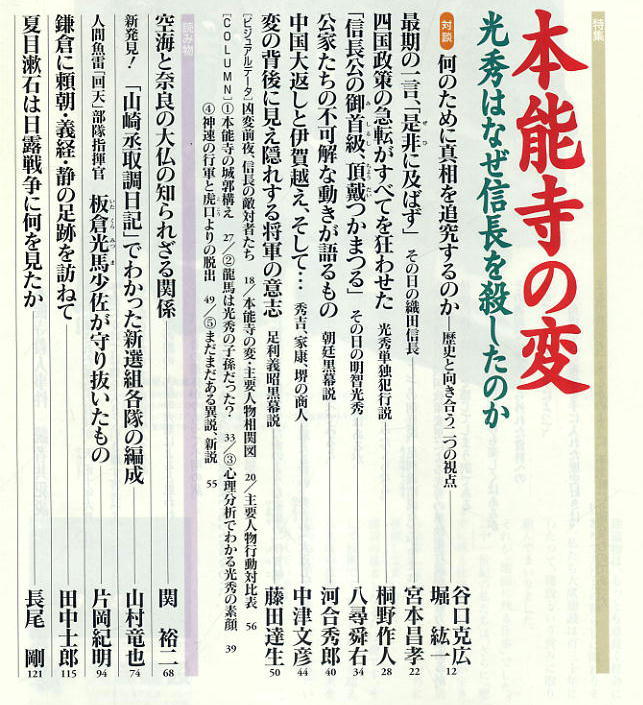 特集
本能寺の変
光秀はなぜ信長を殺したのか
対談 何のために真相を追究するのか―歴史と向き合う二つの視点 谷口克広 堀 紘一 12
最期の一言、「是非に及ばず」 その日の織田信長 宮本昌孝 22
四国政策の急転がすべてを狂わせた 光秀単独犯行説 桐野作人 28
「信長公の御首級、頂戴つかまつる」 その日の明智光秀 八尋舜右 34
公家たちの不可解な動きが語るもの 朝廷黒幕説 河合秀郎 40
中国大返しと伊賀越え、そして… 秀吉、家康、堺の商人 中津文彦 44
変の背後に見え隠れする将軍の意志 足利義昭黒幕説 藤田達生 50
[ビジュアルデータ]凶変前夜 信長の敵対者たち 18/本能寺の変・主要人物相関図 20/主要人物行動対比表 56
[COLUMN]①本能寺の城郭構え 27/②龍馬は光秀の子孫だった? 33/③心理分析でわかる光秀の素顔 39
④神速の行軍と虎口よりの脱出 49/⑤まだまだある異説、新説 55
読み物
空海と奈良の大仏の知られざる関係 関 裕二 68
新発見!「山崎丞取調日記」でわかった新選組各隊の編成 山村竜也 74
人間魚雷「回天」部隊指揮官 板倉光馬少佐が守り抜いたもの 片岡紀明 94
鎌倉に頼朝・義経・静の足跡を訪ねて 田中士郎 115
夏目漱石は日露戦争に何を見たか 長尾 剛 121